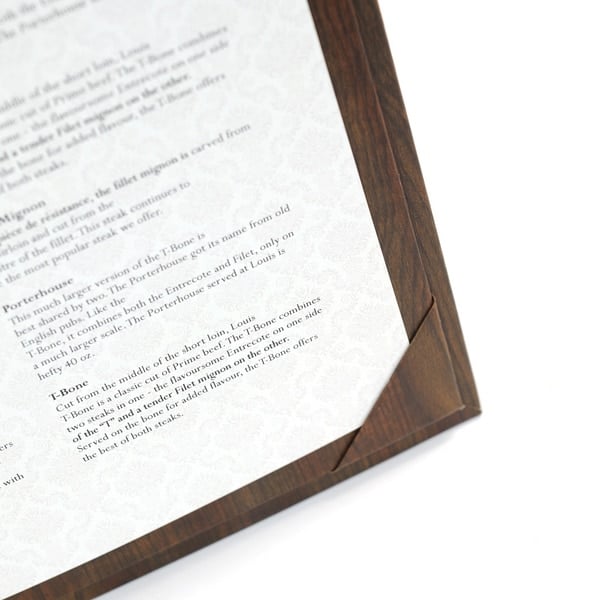 oth the En
he Porterhouse
iddle of the short loin, Louis
sic cut of Prime beef. The T-Bone combines
one - the flavoursome Entrecote on one side
nd a tender Filet mignon on the other.
the bone for added flavour, the T-Bone offers
f both steaks.
Mignon
pièce de résistance, the fillet mignon is carved from
sirloin and cut from the
tre of the fillet. This steak continues to
e the most popular steak we offer.
Porterhouse
This much larger version of the T-Bone is
best shared by two. The Porterhouse got its name from old
English pubs. Like the
T-Bone, it combines both the Entrecote and Filet, only on
a much larger scale. The Porterhouse served at Louis is
hefty 40 oz.
T-Bone
Cut from the middle of the short loin, Louis
T-Bone is a classic cut of Prime beef. The T-Bone combines
two steaks in one - the flavoursome Entrecote on one side
of the "T" and a tender Filet mignon on the other.
Served on the bone for added flavour, the T-Bone offers
the best of both steaks.
ers
with